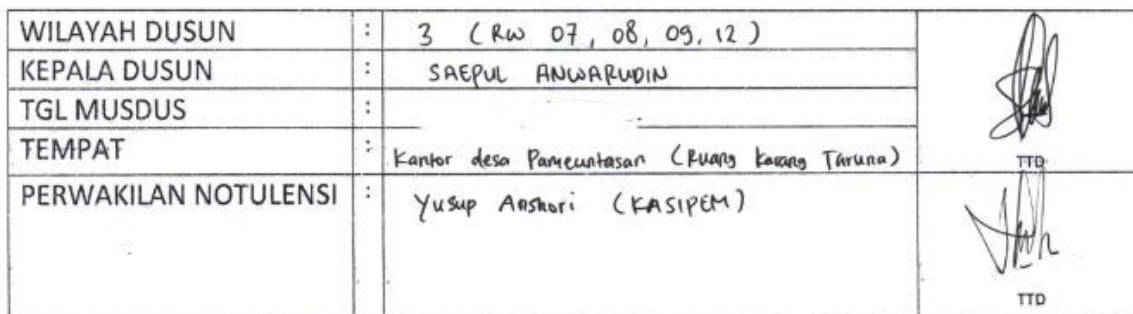 WILAYAH DUSUN : 3 (RW 07, 08, 09, 12)
KEPALA DUSUN : SAEPUL ANWARUDIN
TGL MUSDUS :
TEMPAT : Kantor desa Pameuntasan (Ruang Karang Taruna)
TTD
PERWAKILAN NOTULENSI : Yusup Anshori (KASIPEM)
TTD